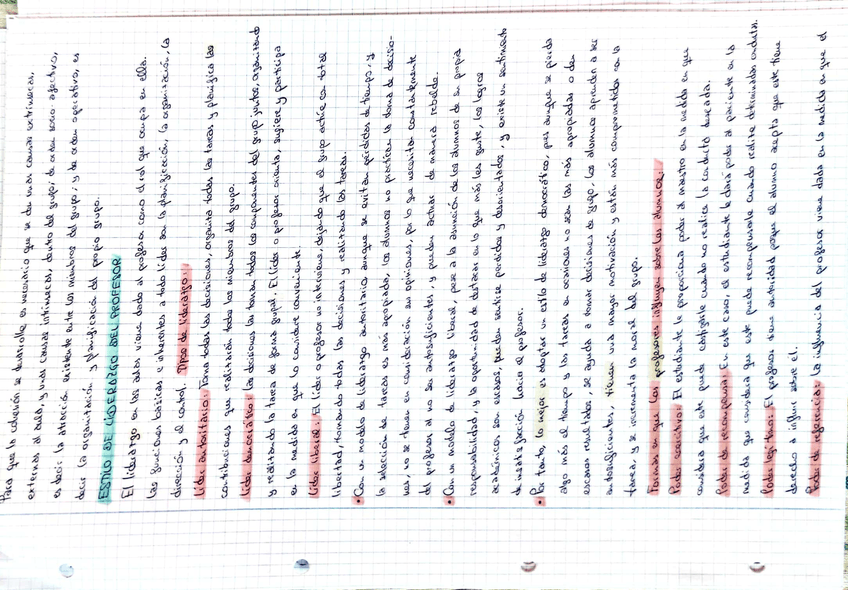 Para que la cohesión se desarrolle es necesario que se den unas causas extrínsecas,
externas al aula, y unas causas intrínsecas, dentro del grupo; de orden socio-afectivo,
es decir la atracción existente entre los miembros del grupo; y de orden operativo, es
decir la organización y planificación del propio grupo.
ESTILO DE LIDERAZGO DEL PROFESOR
El liderazgo en las aulas viene dado al profesor como el rol que ocupa en ella.
Las funciones básicas e inherentes a todo líder son la planificación, la organización, la
dirección y el control. Tipos de liderazgo:
Líder autoritario: Toma todas las decisiones, organiza todas las tareas y planifica las
contribuciones que realizarán todos los miembros del grupo.
Líder democrático: Las decisiones las toman todos los componentes del grupo juntos, organizando
y realizando la tarea de forma grupal. El líder o profesor orienta, sugiere y participa
en la medida en que lo considere conveniente.
Líder liberal: El líder o profesor no interviene, dejando que el grupo actúe con total
libertad, tomando todas las decisiones y realizando las tareas.
• Con un modelo de liderazgo autoritario aunque se evitan pérdidas de tiempo, y
la selección de tareas es más apropiada, los alumnos no practican la toma de decisio-
nes, no se tienen en consideración sus opiniones, por lo que necesitan constantemente
del profesor al no ser autosuficientes, y pueden actuar de manera rebelde.
• Con un modelo de liderazgo liberal, pese a la asunción de los alumnos de su propia
responsabilidad, y la oportunidad de destacar en lo que más les guste, los logros
académicos son escasos, pueden sentirse perdidos y desorientados, y existe un sentimiento
de insatisfacción hacia el profesor.
• Por tanto, lo mejor es adoptar un estilo de liderazgo democrático, pues aunque se pierda
algo más el tiempo y las tareas en ocasiones no sean las más apropiadas o den
escasos resultados, se ayuda a tomar decisiones de grupo, los alumnos aprenden a ser
autosuficientes, tienen una mayor motivación y están más comprometidos con la
tarea, y se incrementa la moral del grupo.
Formas en que los profesores influyen sobre los alumnos:
Poder coercitivo: El estudiante le proporciona poder al maestro en la medida en que
considera que este puede castigarle cuando no realice la conducta buscada.
Poder de recompensa: En este caso, el estudiante le dará poder al paciente en la
medida que considera que este puede recompensarle cuando realice determinada conducta.
Poder legítimo: El profesor tiene autoridad porque el alumno acepta que este tiene
derecho a influir sobre el.
Poder de referencia: La influencia del profesor viene dada en la medida en que el